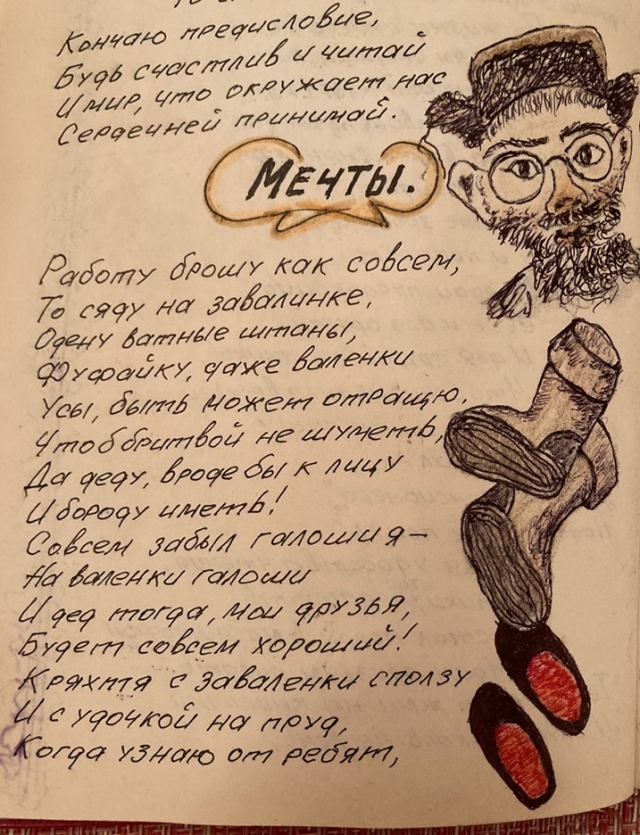 Кончаю предисловие,
Будь счастлив и читай
И мир, что окружает нас
Сердечней принимай.
МЕЧТЫ.
Работу брошу как совсем,
То сяду на завалинке,
Одену ватные штаны,
Фуфайку, даже валенки
Усы, быть может отращю.
Чтоб бритвой не шуметь,
Да деду, вроде бы к лицу
И бороду иметь!
Совсем забыл галоши я-
На валенки галоши
И дед тогда, мои друзья,
Будет совсем хороший!
Кряхтя с заваленки сползу
И с удочкой на пруд,
Когда узнаю от ребят,